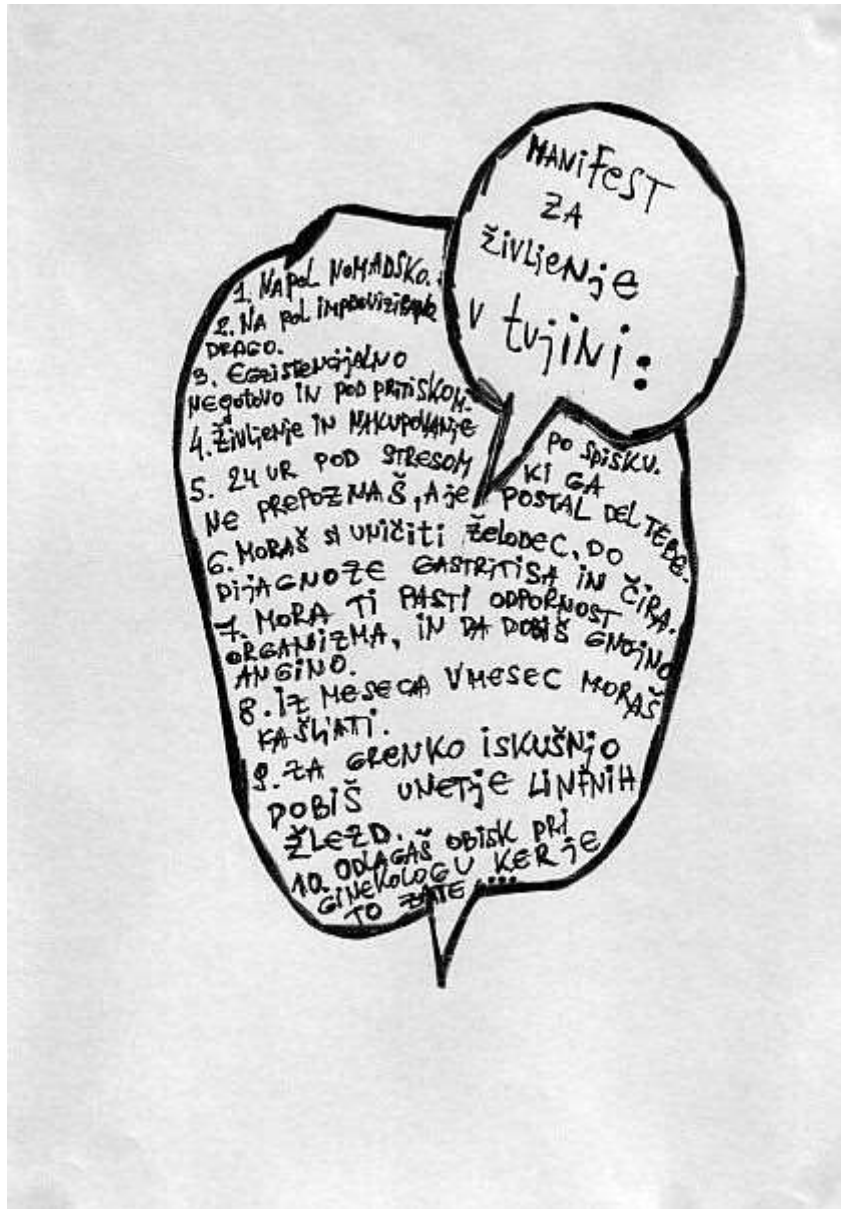 MANIFEST
ZA
ŽIVLJENJE
V tujINI:
1. NAPOL NOMADSKO.
2. NA POL IMPROVIZIRANO
DRAGO.
3. EGZISTENCIJALNO
NEGOTOVO IN POD PRITISKOM.
4. ŽIVLJENJE IN NAKUPOVANJE PO SPISKU.
5. 24 UR POD STRESOM KI GA
NE PREPOZNAŠ, A JE POSTAL DEL TEBE.
6. MORAŠ SI UNIČITI ŽELODEC, DO
DIJAGNOZE GASTRITISA IN ČIRA.
7. MORA TI PASTI ODPORNOST
ORGANIZMA, IN DA DOBIŠ GNOJNO
ANGINO.
8. IZ MESECA V MESEC MORAŠ
KAŠLJATI.
9. ZA GRENKO ISKUŠNJO
DOBIŠ UNETJE LIMFNIH
ŽLEZD.
10. ODLAGAŠ OBISK PRI
GINEKOLOGU, KER JE
TO ZATE ...